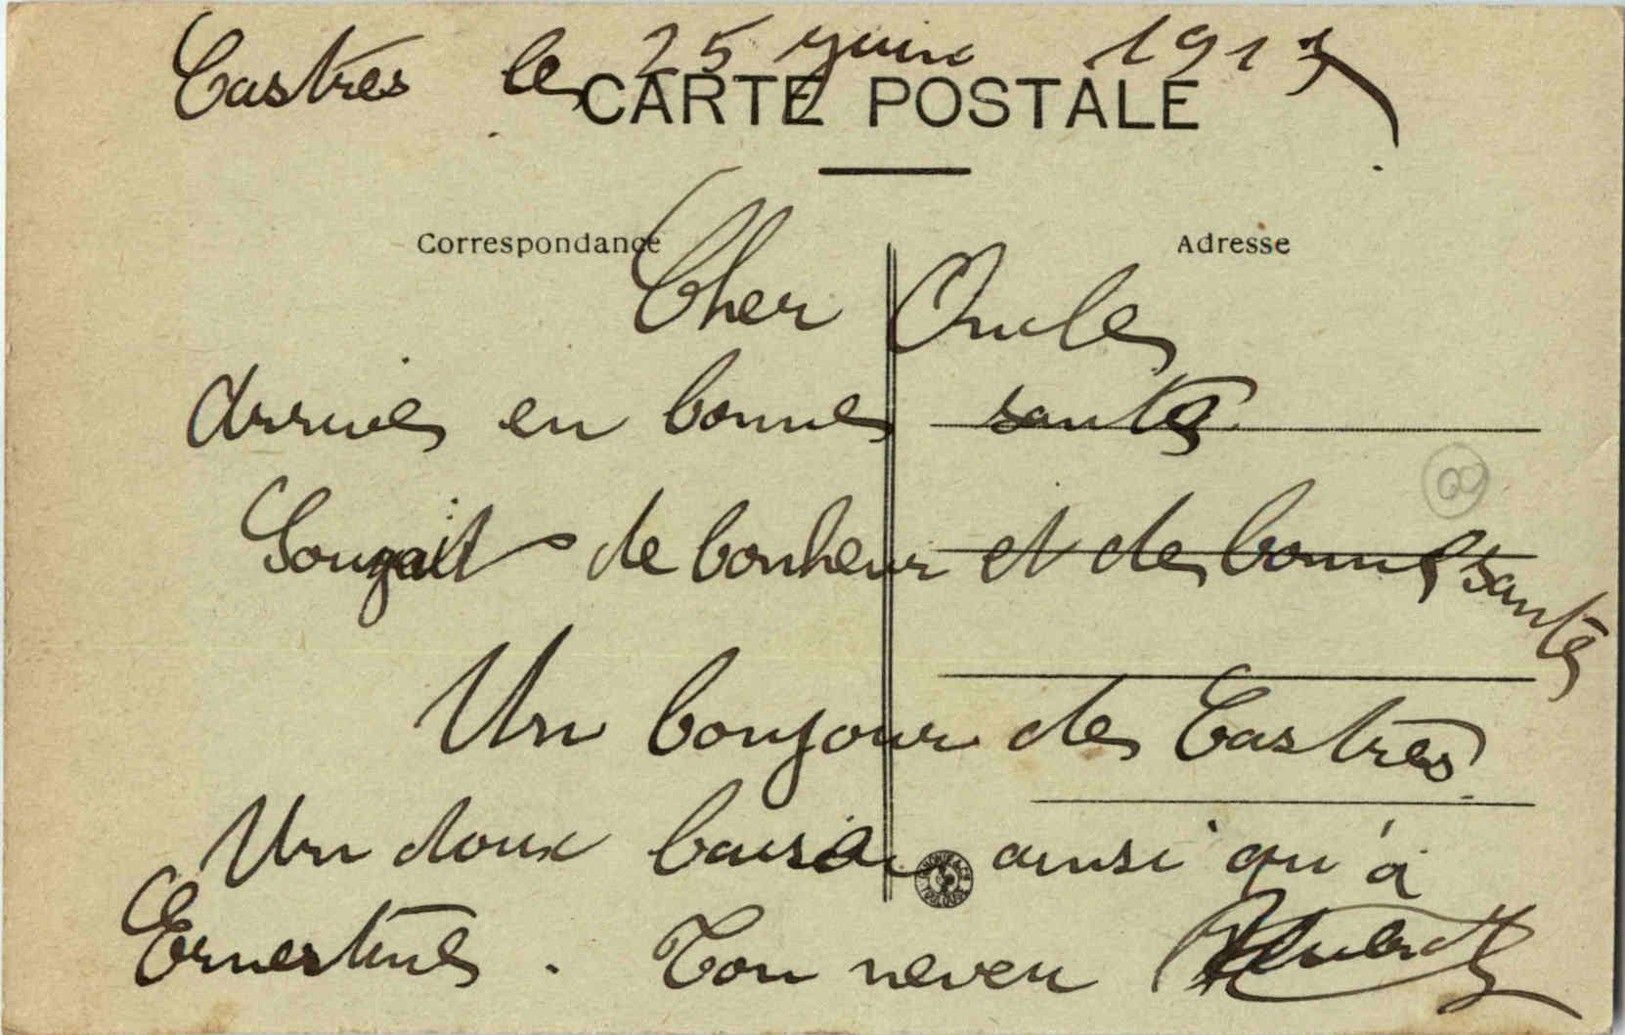 Castres le 25 juin 191
CARTE POSTALE
Correspondance
Adresse
Cher Oncle
Arrivé en bonne santé
Sougait de bonheur et de bonne santé
Un bonjour de Castres
Un doux baiser ainsi qu'à
Ernestine. Ton neveu